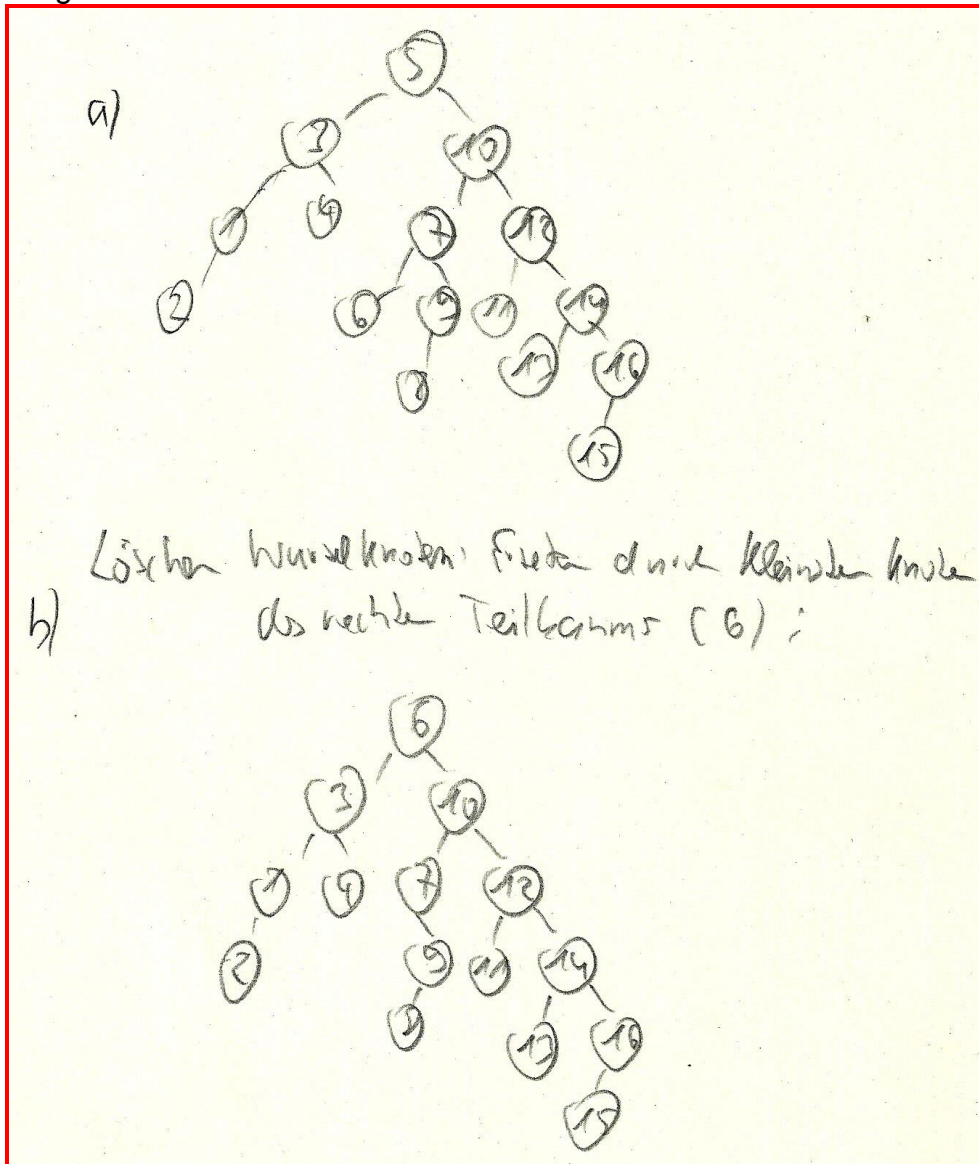 a)
5
3 10
1 4 7 12
2 6 9 11 14
8 13 16
15
Löschen Wurzelknoten: Ersetzen durch kleinsten Knoten
b) des rechten Teilbaums (6):
6
3 10
1 4 7 12
2 9 11 14
8 13 16
15